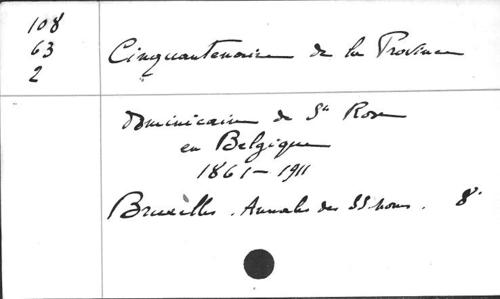 108
63
2
Cinquantenaire de la Province
Dominicaine de Ste Rose
en Belgique
1861 - 1911
Bruxelles. Annales des SS. noms. 8°